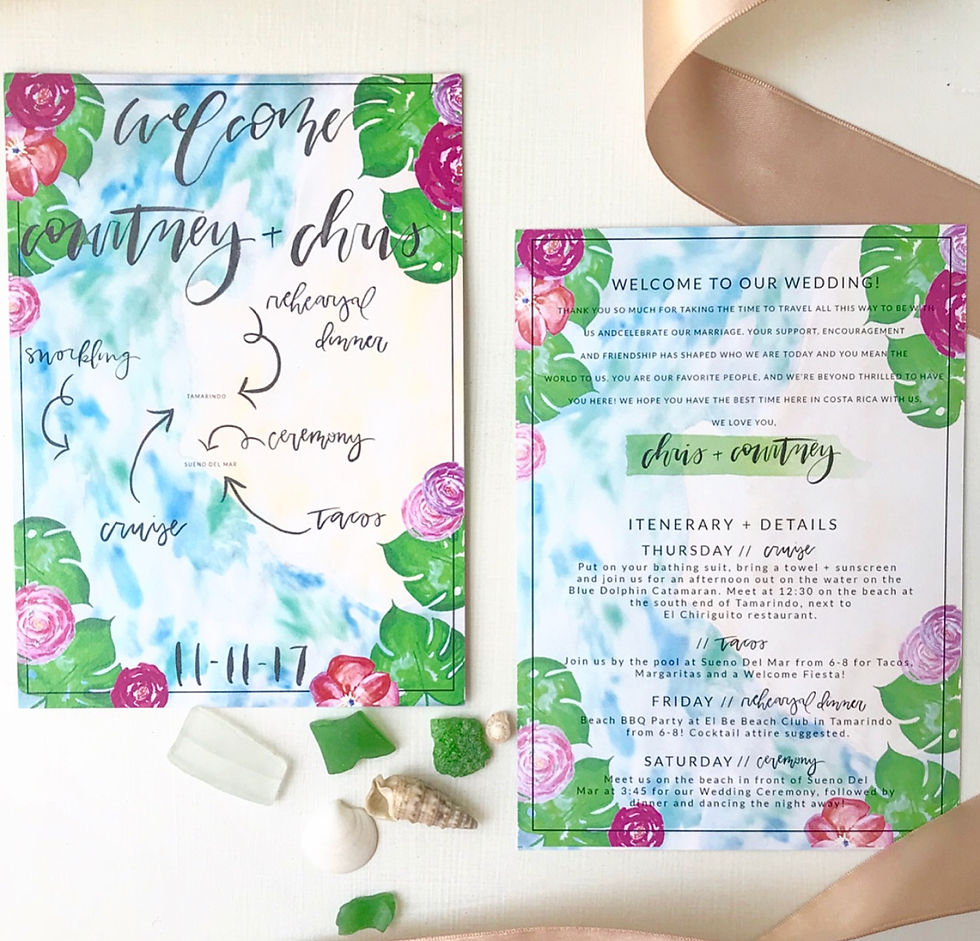 welcome
courtney + chris
rehearsal
dinner
snorkling
TAMARINDO
ceremony
SUENO DEL MAR
cruise
Tacos
11-11-17
WELCOME TO OUR WEDDING!
THANK YOU SO MUCH FOR TAKING THE TIME TO TRAVEL ALL THIS WAY TO BE WITH
US ANDCELEBRATE OUR MARRIAGE. YOUR SUPPORT, ENCOURAGEMENT
AND FRIENDSHIP HAS SHAPED WHO WE ARE TODAY AND YOU MEAN THE
WORLD TO US. YOU ARE OUR FAVORITE PEOPLE, AND WE'RE BEYOND THRILLED TO HAVE
YOU HERE! WE HOPE YOU HAVE THE BEST TIME HERE IN COSTA RICA WITH US.
WE LOVE YOU,
chris + courtney
ITENERARY + DETAILS
THURSDAY // cruise
Put on your bathing suit, bring a towel + sunscreen
and join us for an afternoon out on the water on the
Blue Dolphin Catamaran. Meet at 12:30 on the beach at
the south end of Tamarindo, next to
El Chiriguito restaurant.
// Tacos
Join us by the pool at Sueno Del Mar from 6-8 for Tacos,
Margaritas and a Welcome Fiesta!
FRIDAY // rehearsal dinner
Beach BBQ Party at El Be Beach Club in Tamarindo
from 6-8! Cocktail attire suggested.
SATURDAY // ceremony
Meet us on the beach in front of Sueno Del
Mar at 3:45 for our Wedding Ceremony, followed by
dinner and dancing the night away!